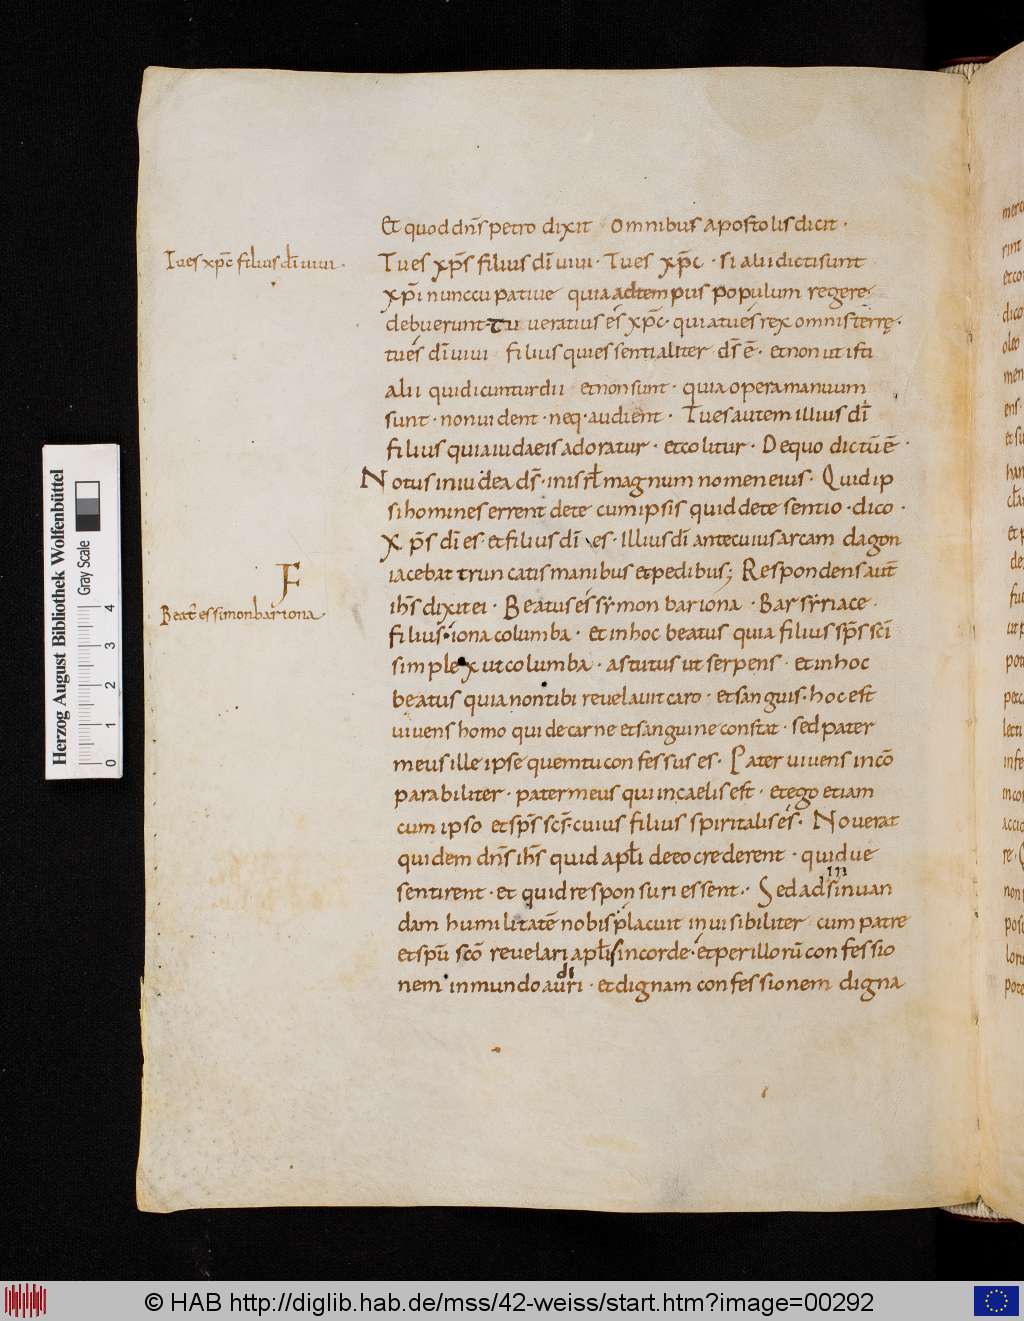 Et quod dñs petro dixit omnibus apostolis dicit ·
Tu es xp̄c filius dī uiui ·
Tu es xp̄s filius dī uiui · Tu es xp̄c · si alii dicti sunt
xp̄i nunccupatiue quia ad tempus populum regere
debuerunt · Tu ueratius és xp̄c · qui atués rex omnis terrę ·
tués dī uiui filius qui essentialiter d̄s ē · et non ut isti
alii qui dicuntur dii et non sunt · quia opera manuum
sunt · non uident · neq · audient · Tu es autem illius dī
filius quia iudaeis adoratur · et colitur · De quo dictū ē ·
Notus in iudea d̄s · in isrl̄ magnum nomen eius · Quid ip
si homines errent de te cum ipsis quid de te sentio · dico ·
Xp̄s dī es et filius dī es · Illius dī ante cuius arcam dagon
iacebat truncatis manibus et pedibus; Respondens aut̄
F
Beat es simon bar iona
ih̄s dixit ei · Beatus és sẏmon bar iona · Bar sẏriace
filius · iona columba · et in hoc beatus quia filius sp̄s sc̄i
simplex ut columba · astutus ut serpens · et in hoc
beatus quia non tibi reuelauit caro · et sanguis · hoc est
uiuens homo qui de carne et sanguine constat · sed pater
meus ille ipse quem tu confessus es · Pater uiuens incō
parabiliter · pater meus qui in caelis est · et ego etiam
cum ipso et sp̄s sc̄s · cuius filius spiritalis és · Nouerat
quidem dn̄s ih̄s quid apl̄i de eo crederent · quid ue
sentirent · et quid responsuri essent · Sed ad sinuan
dam humilitatē nobis placuit inuisibiliter cum patre
et sp̄u scō reuelari apl̄is in corde · et per illorū confessio
nem in mundo audiri · et dignam confessionem digna
Herzog August Bibliothek Wolfenbüttel
Gray Scale
0 1 2 3 4
© HAB http://diglib.hab.de/mss/42-weiss/start.htm?image=00292